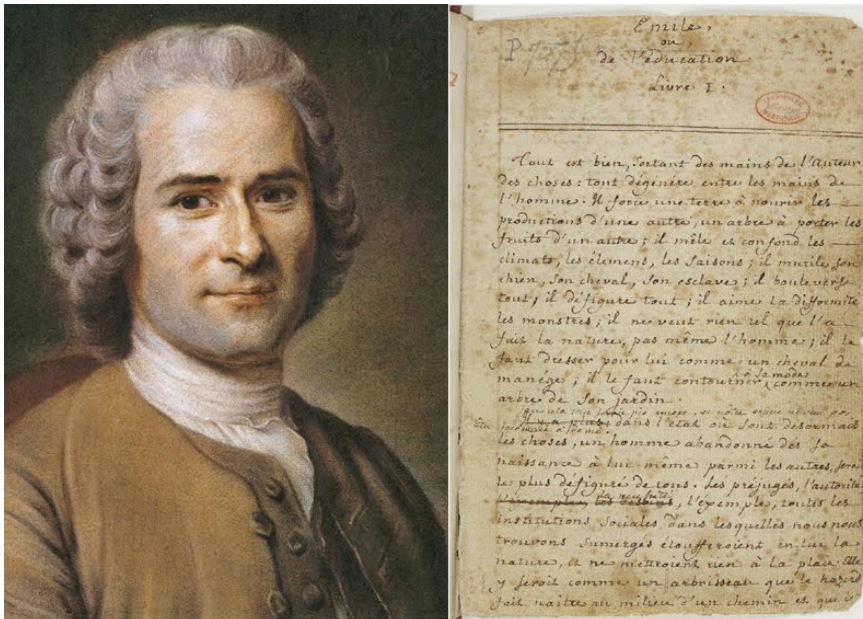 P 7071
Emile,
ou
de l'éducation
Livre I.
Tout est bien, sortant des mains de l'auteur
des choses: tout dégénére entre les mains de
l'homme. Il force une terre à nourir les
productions d'une autre, un arbre à porter les
fruits d'un autre; il mêle et confond les
climats, les élemens, les saisons; il mutile son
chien, son cheval, son esclave; il bouleverse
tout, il défigure tout; il aime la difformité
les monstres; il ne veut rien tel que l'a
fait la nature, pas même l'homme; il le
faut dresser pour lui comme un cheval de
manége; il le faut contourner à sa mode comme un
arbre de son jardin.
dans l'état où sont desormais
les choses, un homme abandonné des sa
naissance à lui même parmi les autres, seroit
le plus défiguré de tous. Les préjugés, l'autorité
la necessité, l'éxemple, toutes les
institutions sociales dans lesquelles nous nous
trouvons sumergés étoufferoient en lui la
nature, et ne mettroient rien à la place. Elle
y seroit comme un arbrisseau que le hazard
fait naitre au milieu d'un chemin et que